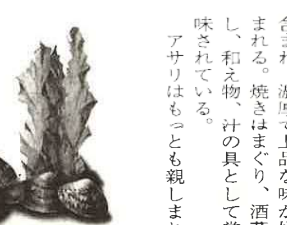 含まれ、濃厚で上品な味が
まれる。焼きはまぐり、酒蒸
し、和え物、汁の具として賞
味されている。
アサリはもっとも親しま